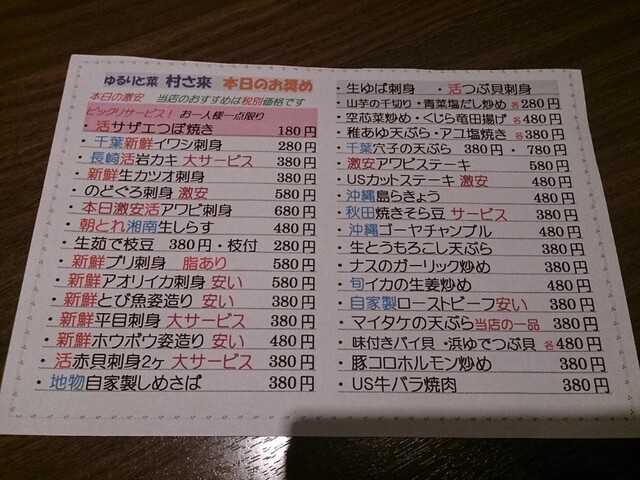 ゆるりと菜 村さ来 本日のお奨め
本日の激安 当店のおすすめは税別価格です
ビックリサービス! お一人様一点限り
・活サザエつぼ焼き 180円
・千葉新鮮イワシ刺身 280円
・長崎活岩カキ 大サービス 380円
・新鮮生カツオ刺身 380円
・のどぐろ刺身 激安 580円
・本日激安活アワビ刺身 680円
・朝とれ湘南生しらす 480円
・生茹で枝豆 380円・枝付 280円
・新鮮ブリ刺身 脂あり 580円
・新鮮アオリイカ刺身 安い 580円
・新鮮とび魚姿造り 安い 380円
・新鮮平目刺身 大サービス 380円
・新鮮ホウボウ姿造り 安い 480円
・活赤貝刺身2ヶ 大サービス 380円
・地物自家製しめさば 380円
・生ゆば刺身 ・活つぶ貝刺身
・山芋の千切り・青菜塩だし炒め 各280円
・空芯菜炒め・くじら竜田揚げ 各480円
・稚あゆ天ぷら・アユ塩焼き 各380円
・千葉穴子の天ぷら 380円・780円
・激安アワビステーキ 580円
・USカットステーキ 激安 480円
・沖縄島らきょう 480円
・秋田焼きそら豆 サービス 380円
・沖縄ゴーヤチャンプル 480円
・生とうもろこし天ぷら 380円
・ナスのガーリック炒め 380円
・旬イカの生姜炒め 480円
・自家製ローストビーフ安い 380円
・マイタケの天ぷら当店の一品 380円
・味付きバイ貝・浜ゆでつぶ貝 各480円
・豚コロホルモン炒め 380円
・US牛バラ焼肉 380円